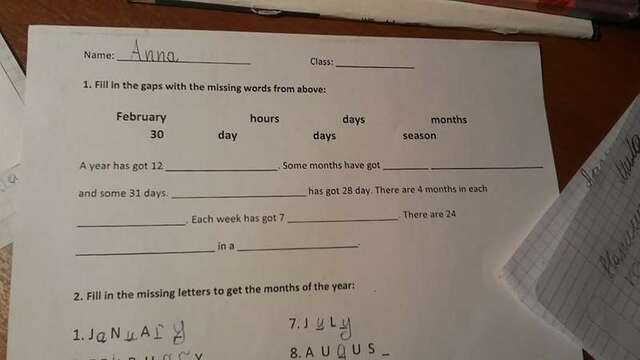 Name: Anna Class:
1. Fill in the gaps with the missing words from above:
February hours days months
30 day days season
A year has got 12 ____________________. Some months have got ________ ____________________
and some 31 days. ____________________ has got 28 day. There are 4 months in each
____________________. Each week has got 7 ____________________. There are 24
____________________ in a ____________________.
2. Fill in the missing letters to get the months of the year:
1. JaNuAry
7. JuLy
8. AUgUS_